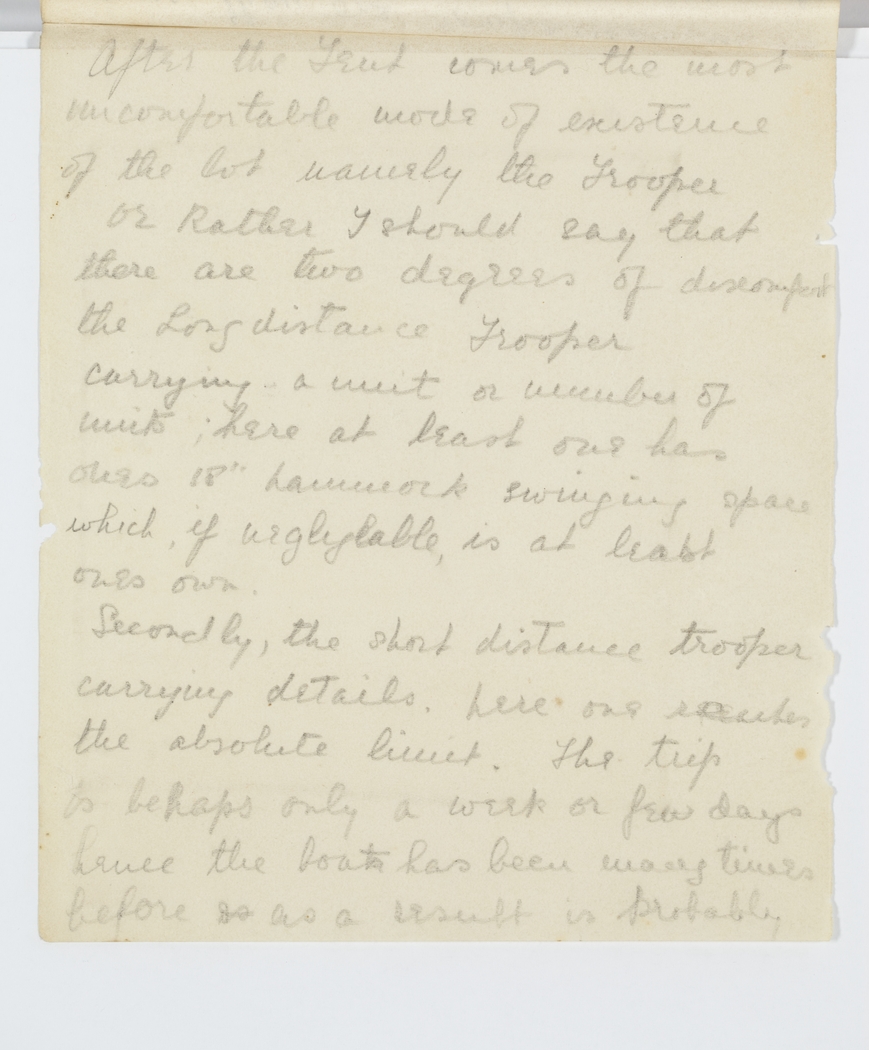 After the Tent comes the most
uncomfortable mode of existence
of the lot namely the Trooper
or Rather I should say that
there are two degrees of discomfort
the Long distance Trooper
carrying a unit or number of
units ; here at least one has
ones 18" hammock swinging space
which, if neglyglable, is at least
ones own.
Secondly, the short distance trooper
carrying details. here one reaches
the absolute limit. The trip
is only a week or few days
hence the boat has been many times
before as a result is probably